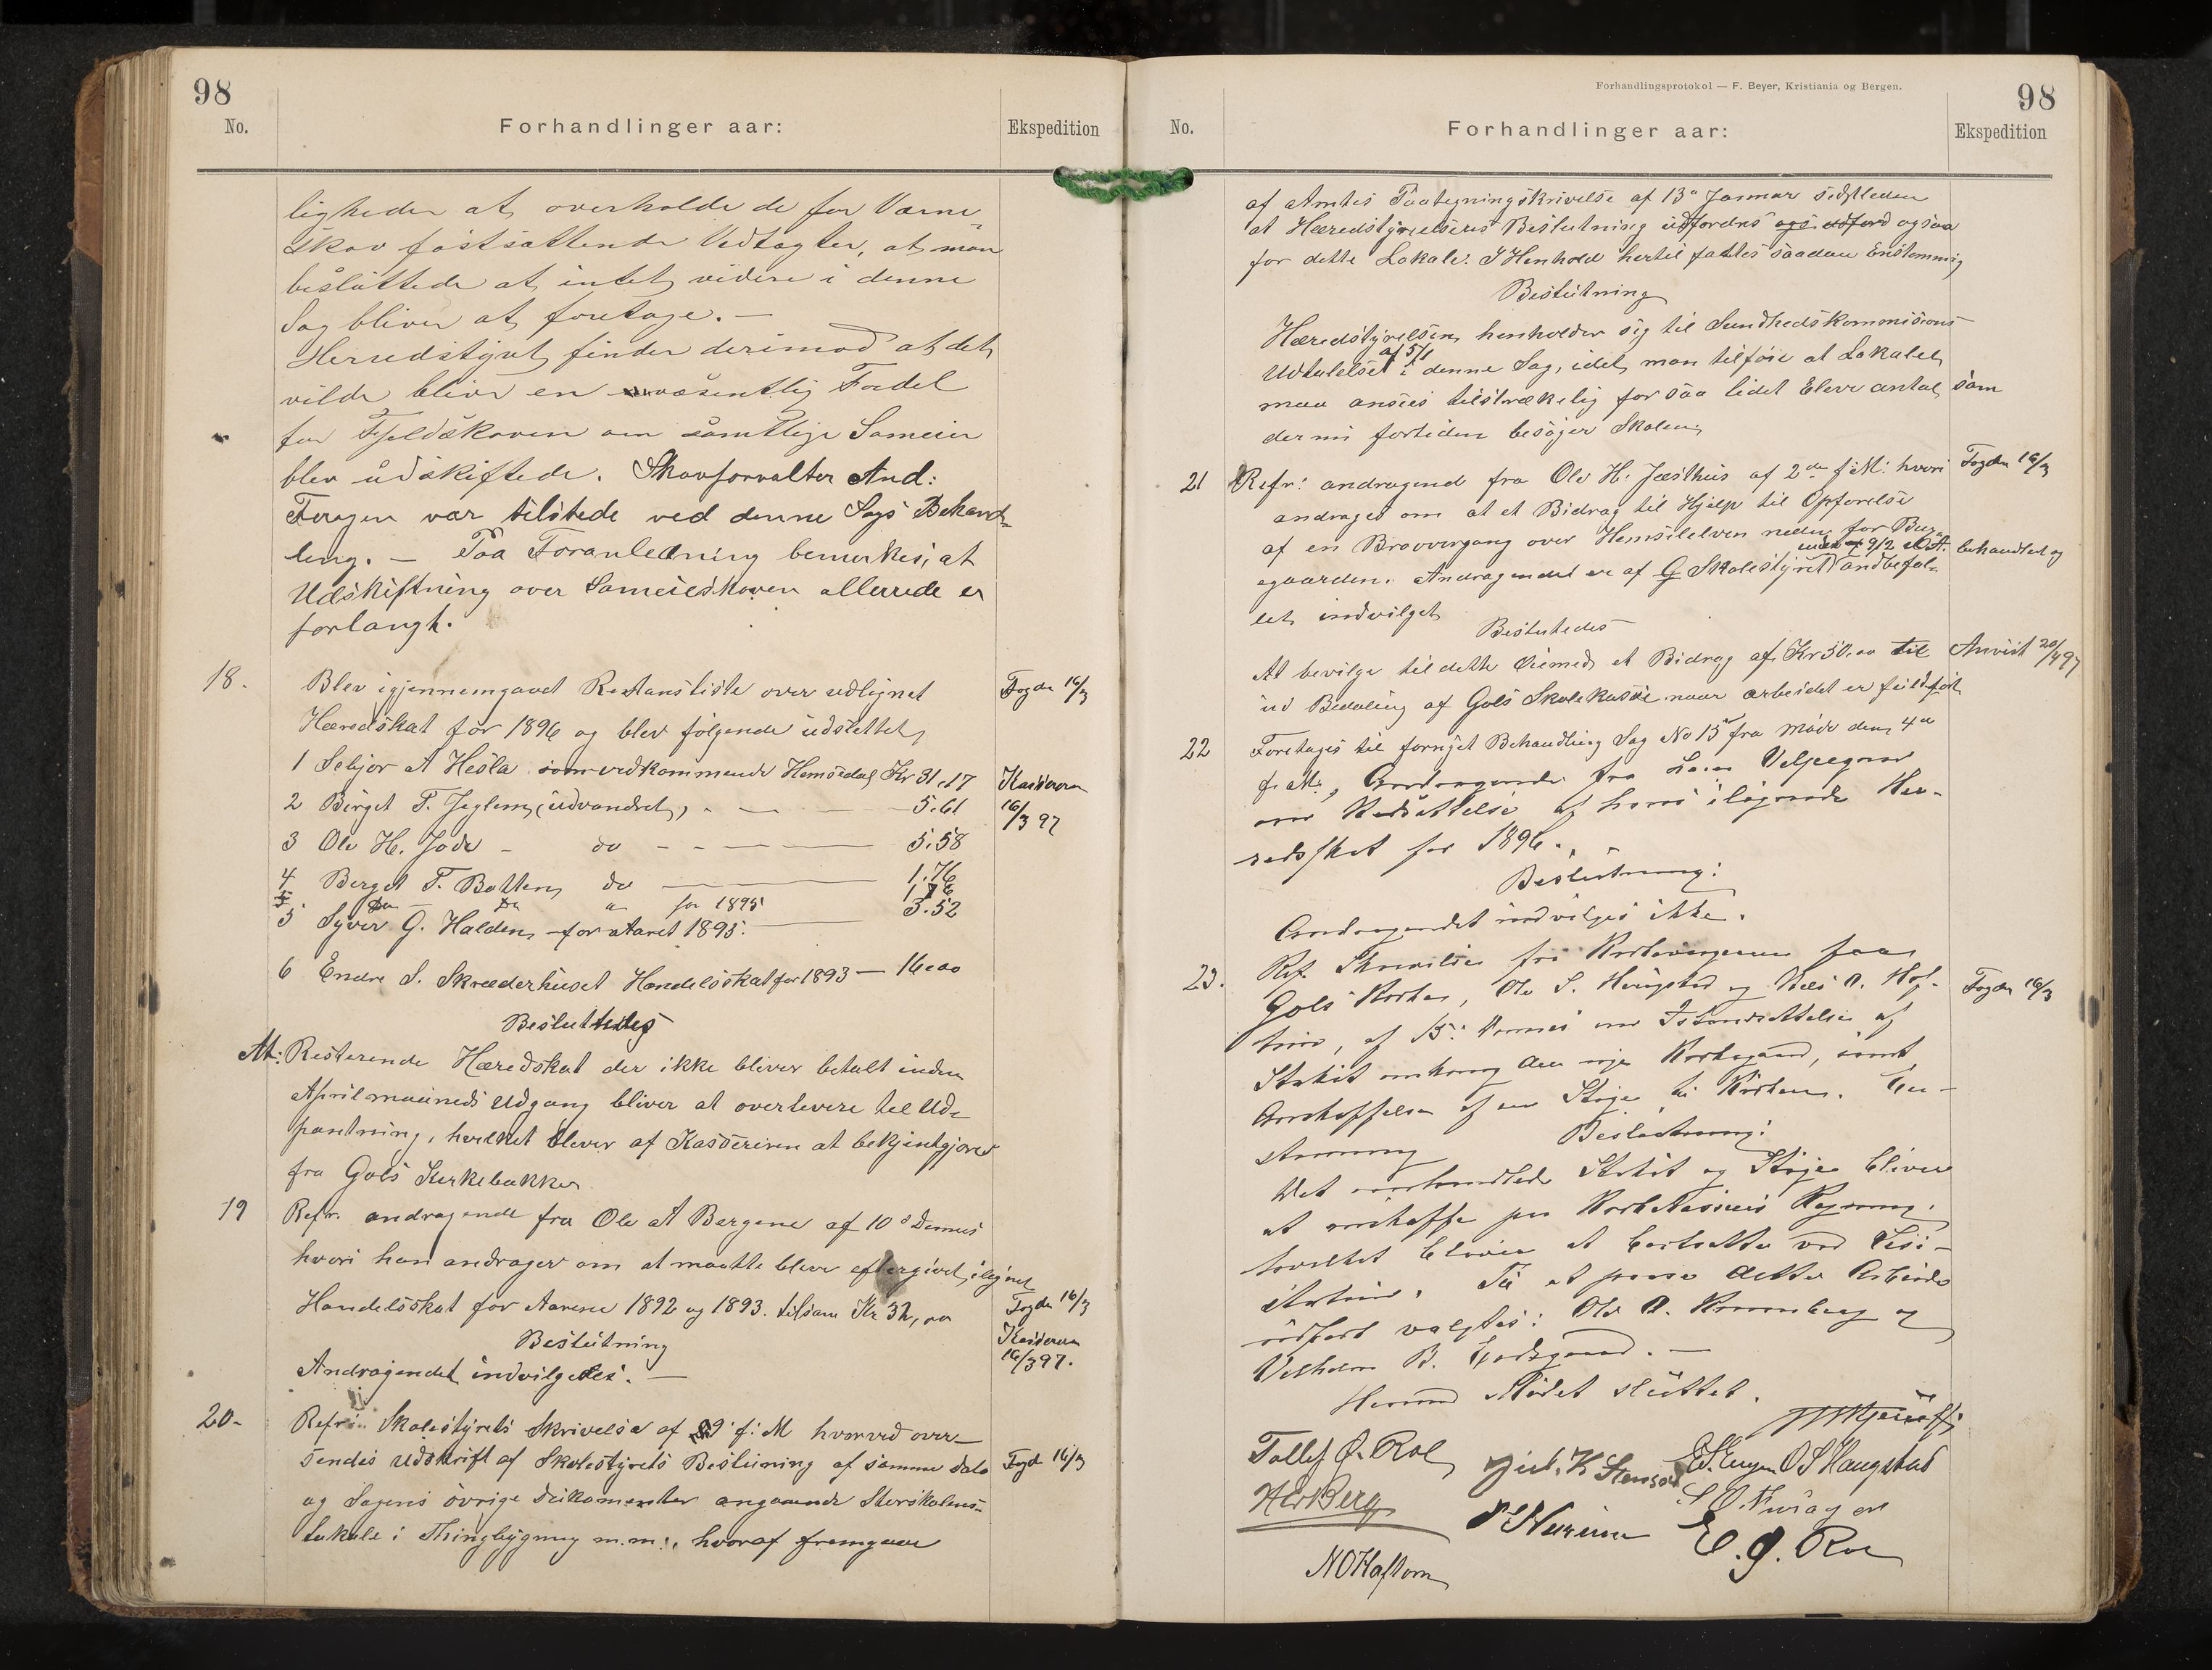 98
No.
Forhandlinger aar:
Ekspedition
ligheden at overholde de forVærne
skov fastsættende Vedtægter, at man
besluttede at intet videre i denne
Sag bliver at foretage. —
Herredstyret finder derimod at det
vilde blive en væsentlig Fordel
for Fjeldskoven om samtlige Sameier
blev udskiftede. Skovforvalter And:
Furagen var tilstede ved denne Sags Behand-
ling. — Paa Foranledning bemerkes, at
Udskiftning over Sameieskoven allerede er
forlangt.
18.
Blev igjennemgaaet Restanseliste over udlignet
Fogden 16/3
Hæredskat for 1896 og blev følgende udslettet
1 Sebjør A Hesla som vedkommende Hemsedal Kr 31.17
Kassereren
2 Birget T. Jeglem (udvandret) - — 5.61
16/3 97
3 Ole H. Jode - do - - — 5.58
4 Berget T. Botten do — 1.76
5 Do — Do " for 1895 1 76
5 Syver G. Halden for Aaret 1895. — 3.52
6 Endre S. Skræderhuset Handelsskat for 1893 — 16.00
Besluttedes
At: Resterende Hæredskat der ikke bliver betalt inden
Aprilmaaneds Udgang bliver at overlevere til Ud-
pantning, hvilket bliver af Kassereren at bekjentgjøres
fra Gols Kirkebakke
19
Refr. andragende fra Ole A Bergene af 10d Dennes
hvori han andrager om at maatte bleve eftergivet ilignet
Handelsskat for Aarene 1892 og 1893. tilsam Kr 32,00
Fogden 16/3
Beslutning
Kassereren
16/3 97.
Andragendet indvilgedes. —
20-
Refr: Skolestyrets Skrivelse af 9' f: M hvorved over-
sendes Udskrift af Skolestyrets Beslutning af samme dato
Fogd 16/3
og Sagens øvrige Dukomenter angaaende Storskolens
Lokale i Thingbygning m.m., hvoraf fremgaar
Forhandlingsprotokol — F. Beyer, Kristiania og Bergen.
98
No.
Forhandlinger aar:
Ekspedition
af Amtes Paategningskrivelse af 13d Januar sidstleden
at Hæredstyrelsens Beslutning udfordres ogsaa
for dette Lokale. I Henhold hertil fattes saadan Enstemmig
Beslutning
Hæredstyrelsen henholder sig til Sundhedskommisions
Udtalelse af 5/1 i denne Sag, idet man tilføie at Lokalet
maa ansees tilstrækelig for saa lidet Elevr antal som
der nu fortiden besøger Skolen
21
Refr: andragend fra Ole H. Jæsthus af 2den f: M: hvori
Fogden 16/3
andrages om at et Bidrag til Hjelp til Opførelse
af en Broovergang over Hemsilelven neden for Bur-
øgaarden. Andragendet er af G Skolestyret under 9/2 d.A. behandlet og andbefal-
let indvilget
Besluttedes
At bevilge til dette Øiemed et Bidrag af Kr 50.00 til
Anvist 20/4 97
ud Betaling af Gols Skolekasse naar arbeidet er fuldført
22
Foretages til fornyet Behandling Sag No 15 fra Møde den 4de
f. M., Andragende fra Velpegaar
om Nedsættelse af hans ilignede Her-
redsskat for 1896.
Beslutning:
Andragendet indvilges ikke.
23.
Ref. Skrivelse fra Kirkeværgerne for
Gols Kirke, Ole S. Haugstad og Nils O. Haf-
Fogden 16/3
ton, af 15. dennes om Istandsættelse af
Stakit omkring den nye Kirkegaard, samt
Anskaffelse af en Stige til Kirken. En-
stemmig
Beslutning:
Det omhandlede Stakit og Stige bliver
at anskaffe paa Kirkekassens Regning.
hvilket bliver at bortsætte ved Lisi-
tation. Til at passe dette Arbeide
udført valgtes: Ole O. Kvamberg og
Vilhelm B. Engegaard. —
Hermed Mødet sluttet.
Tollef O. Roe
O S Haugstad
HerBerg
E. G. Roe
N O Hafton